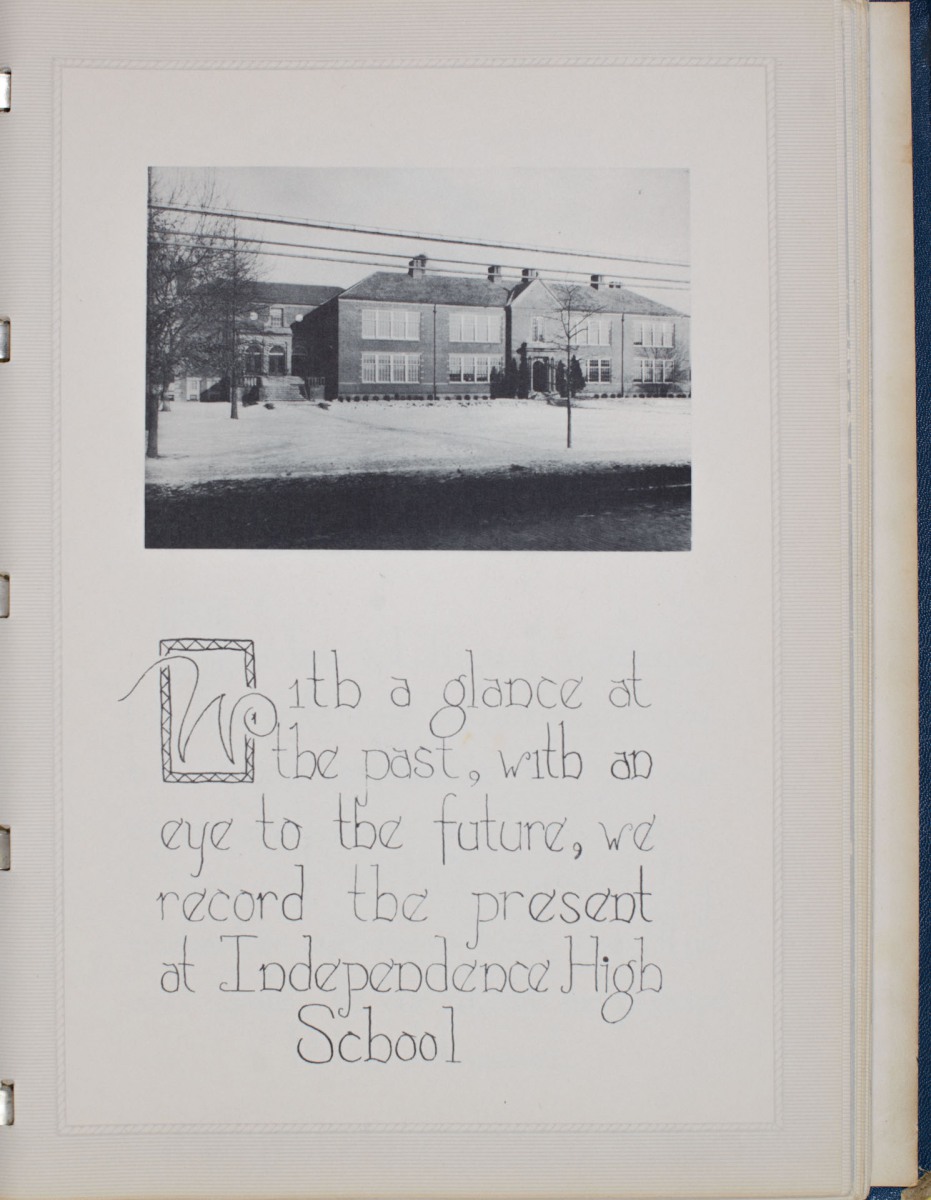 With a glance at
the past, with an
eye to the future, we
record the present
at Independence High
School